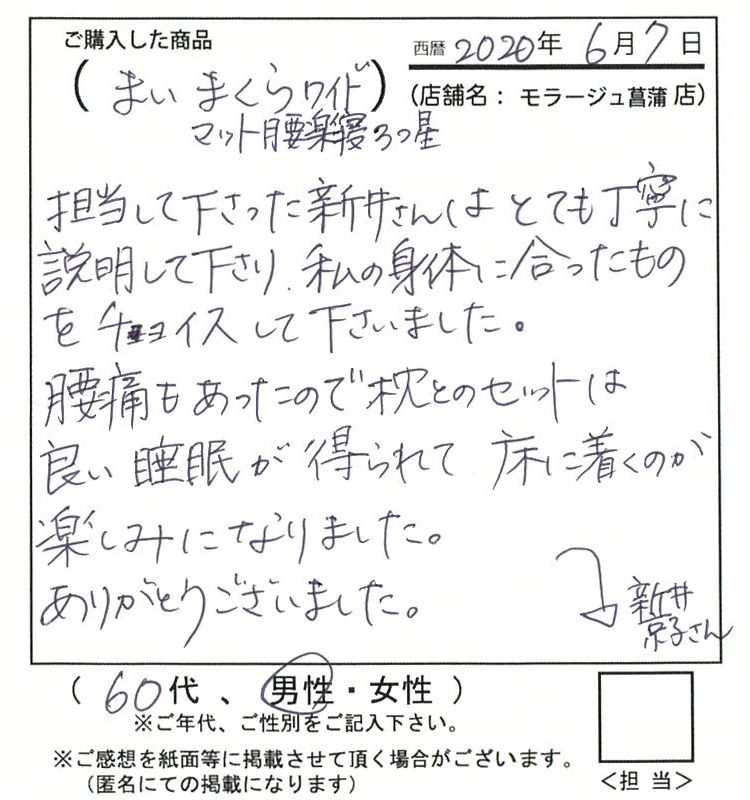 ご購入した商品
西暦 2020年 6月 7日
(まい まくらワイド)
(店舗名: モラージュ菖蒲 店)
マット腰楽寝3つ星
担当して下さった新井さんは とても丁寧に
説明して下さり、私の身体に合ったもの
をチョイスして下さいました。
腰痛もあったので枕とのセットは
良い睡眠が得られて 床に着くのが
楽しみになりました。
ありがとうございました。
新井
京子さん
( 60代 、 男性・女性 )
※ご年代、ご性別をご記入下さい。
※ご感想を紙面等に掲載させて頂く場合がございます。
(匿名にての掲載になります)
<担 当>